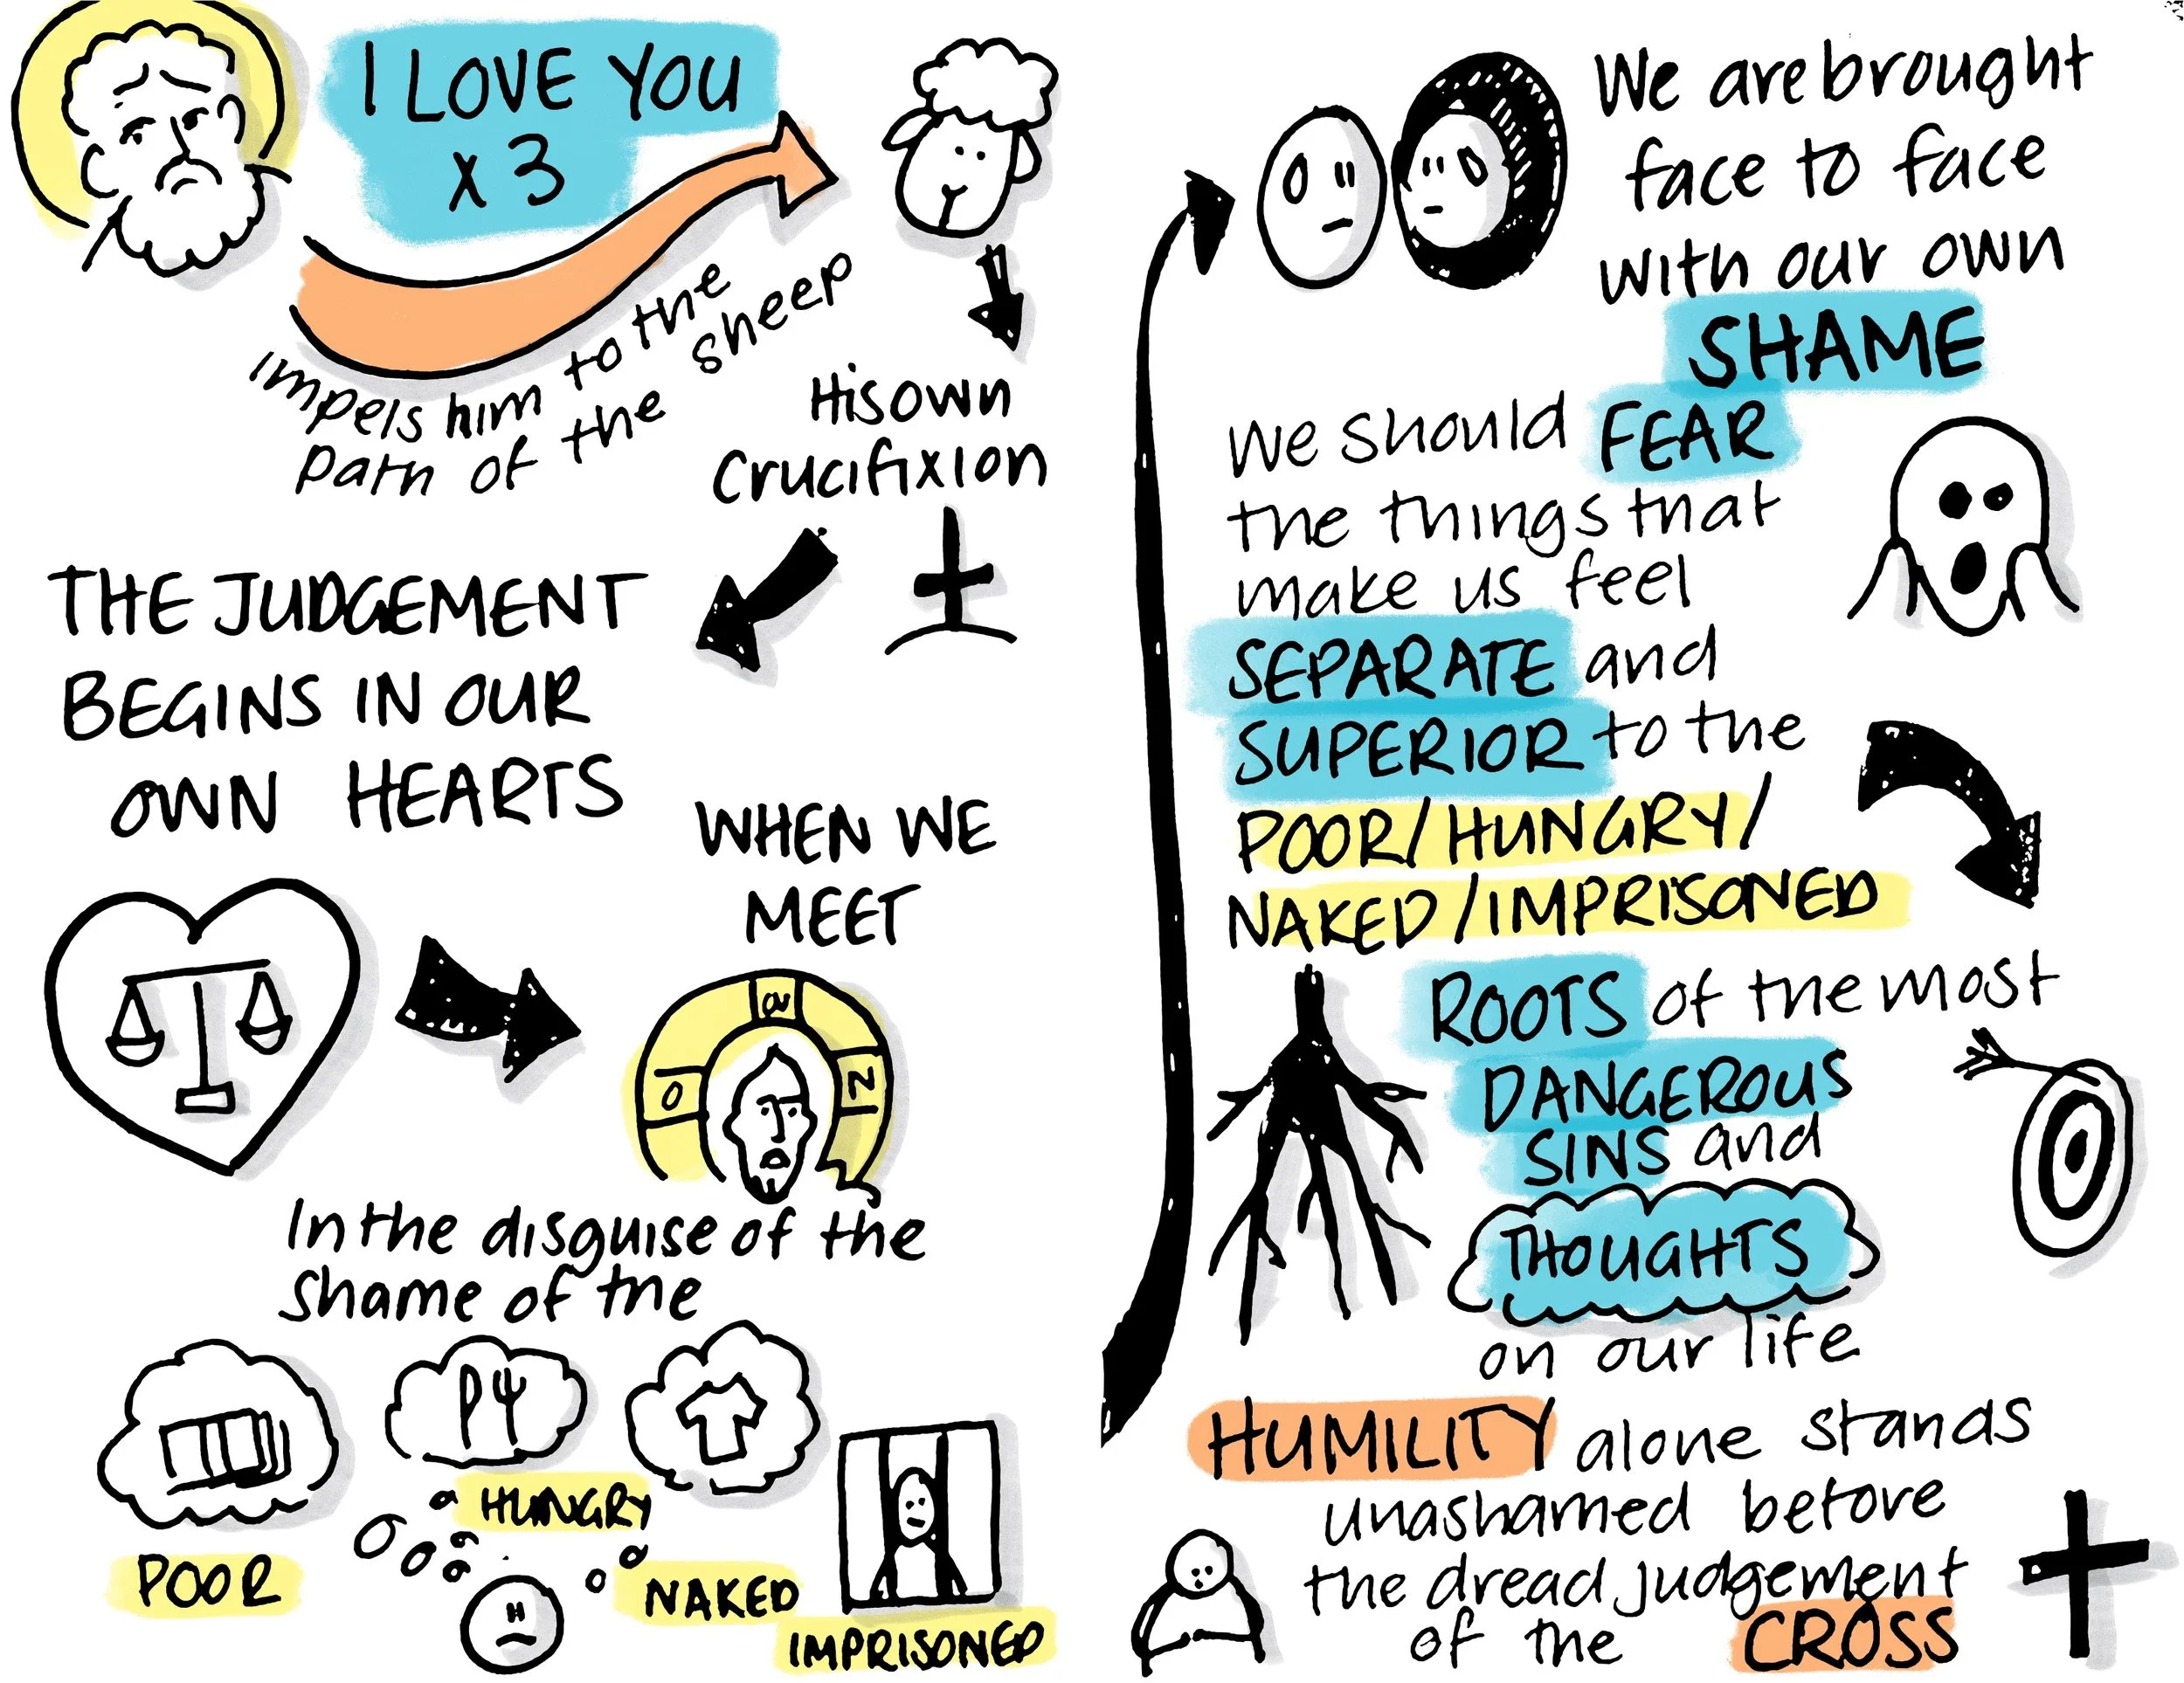 I LOVE YOU
x 3
Impels him to the
path of the sheep
His own
Crucifixion
THE JUDGEMENT
BEGINS IN OUR
OWN HEARTS
WHEN WE
MEET
O ω N
In the disguise of the
shame of the
POOR
HUNGRY
NAKED
IMPRISONED
We are brought
face to face
with our own
SHAME
We should FEAR
the things that
make us feel
SEPARATE and
SUPERIOR to the
POOR/HUNGRY/
NAKED/IMPRISONED
ROOTS of the most
DANGEROUS
SINS and
THOUGHTS
on our life
HUMILITY alone stands
unashamed before
the dread judgement
of the CROSS